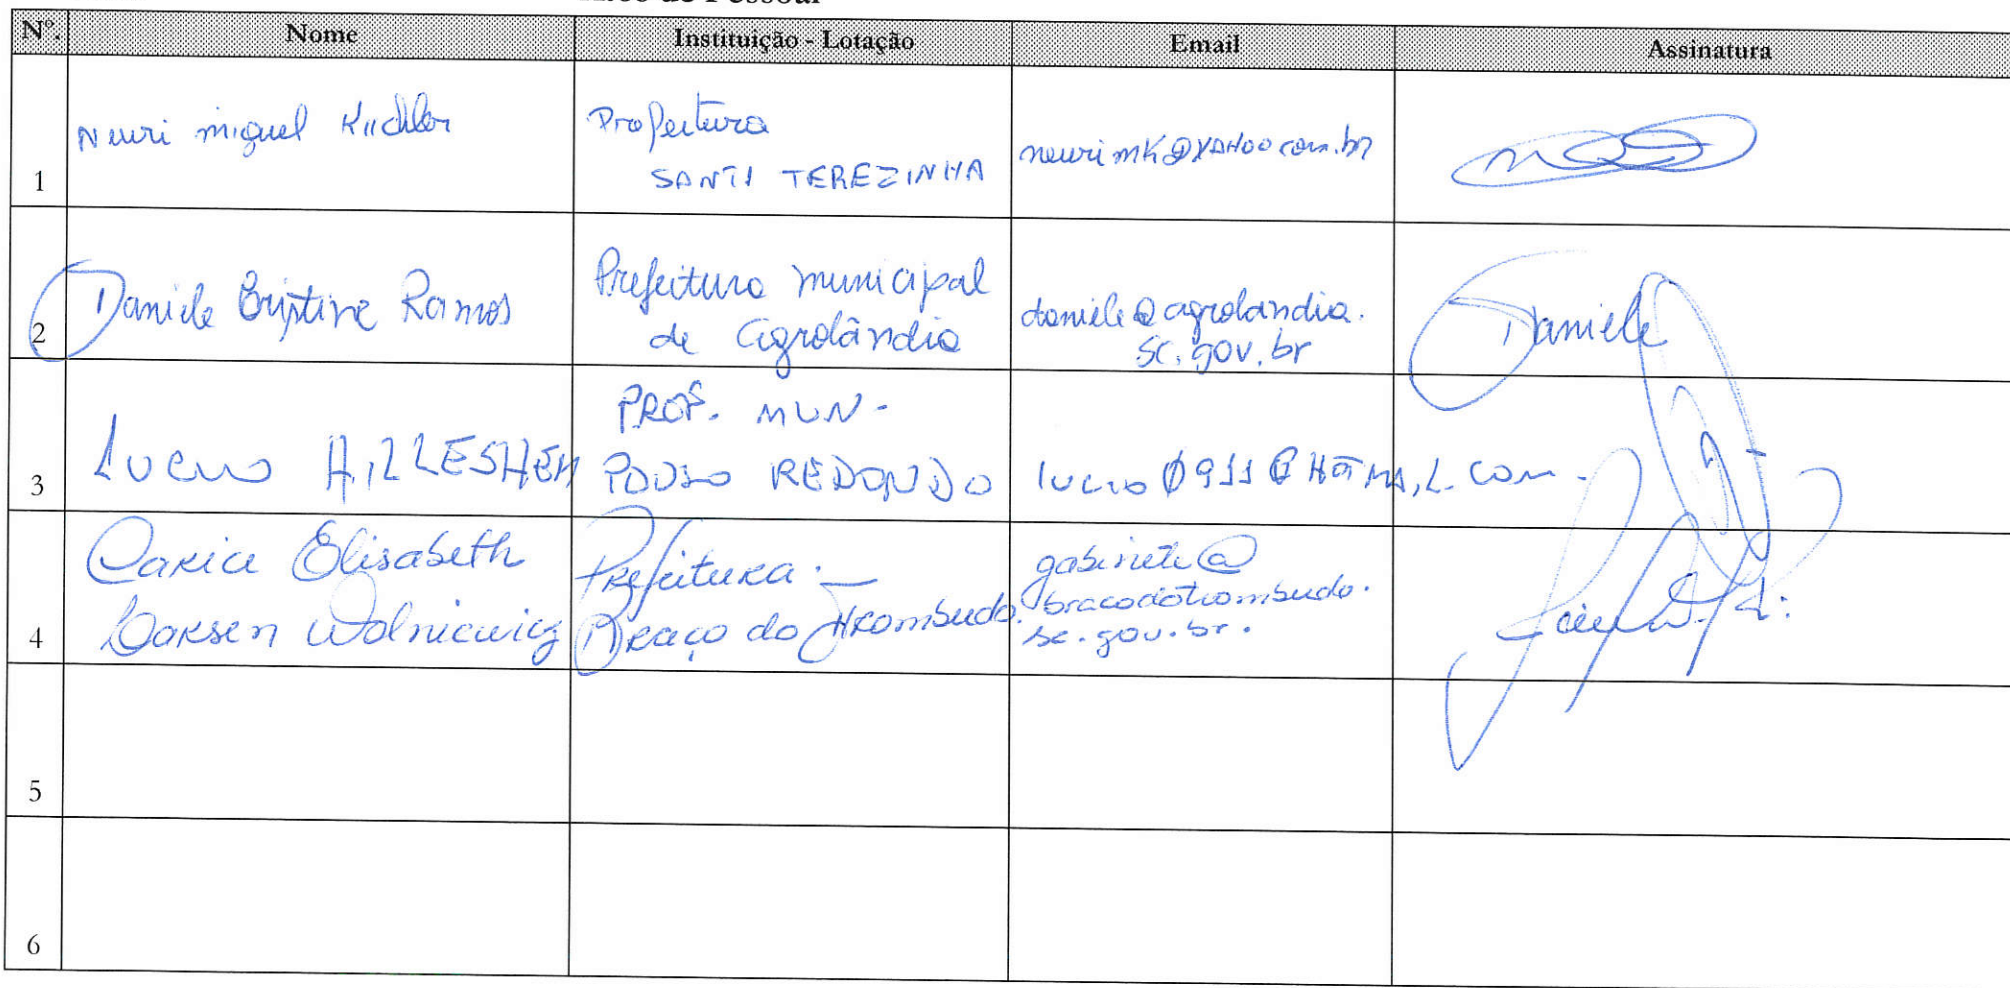 de Pessoal
Nº. Nome Instituição - Lotação Email Assinatura
1 Neuri miguel Prefeitura
SANTA TEREZINHA neurimk@YAHOO.com.br
2 Daniele Cristine Ramos Prefeitura municipal
de Agrolândia daniele@agrolandia.
sc.gov.br Daniele
3 LUCIO HILLESHEM PREF. MUN-
POUSO REDONDO lucio0911@HOTMAIL.COM
4 Carice Elisabeth
Larsen Wolniewicz Prefeitura -
Braço do Trombudo. gabinete@
bracodotrombudo.
sc.gov.br.
5
6